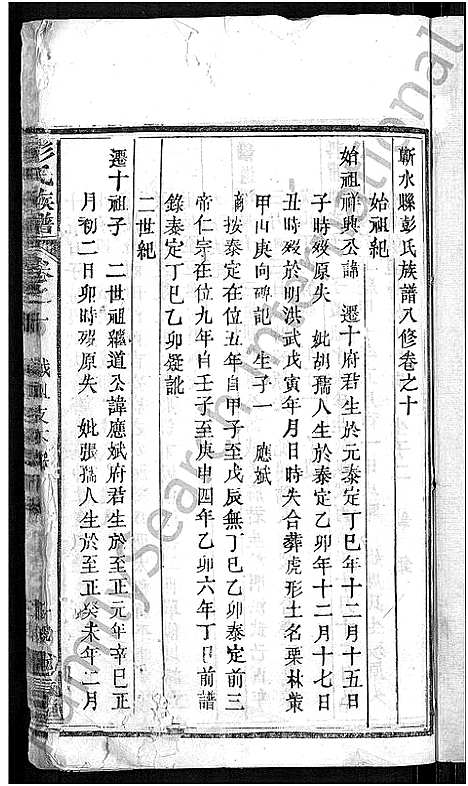 蘄水縣彭氏族譜八修卷之十
始祖紀
始祖祥興公諱 遷十府君生於元泰定丁巳年十二月十五日
子時歿原失 妣胡孺人生於泰定乙卯年十二月十七日
丑時歿於明洪武戊寅年月日時失合葬虎形土名栗林葉
甲山庚向碑記生子一 應斌
按泰定在位五年自甲子至戊辰無丁巳乙卯泰定前三
帝仁宗在位九年自壬子至庚申四年乙卯六年丁巳前譜
錄泰定丁巳乙卯疑訛
二世紀
遷十祖子 二世祖繼道公諱應斌府君生於至正元年辛巳正
月初二日卯時歿原失 妣張孺人生於至正癸未年二月
彭氏族譜
FamilySearch International